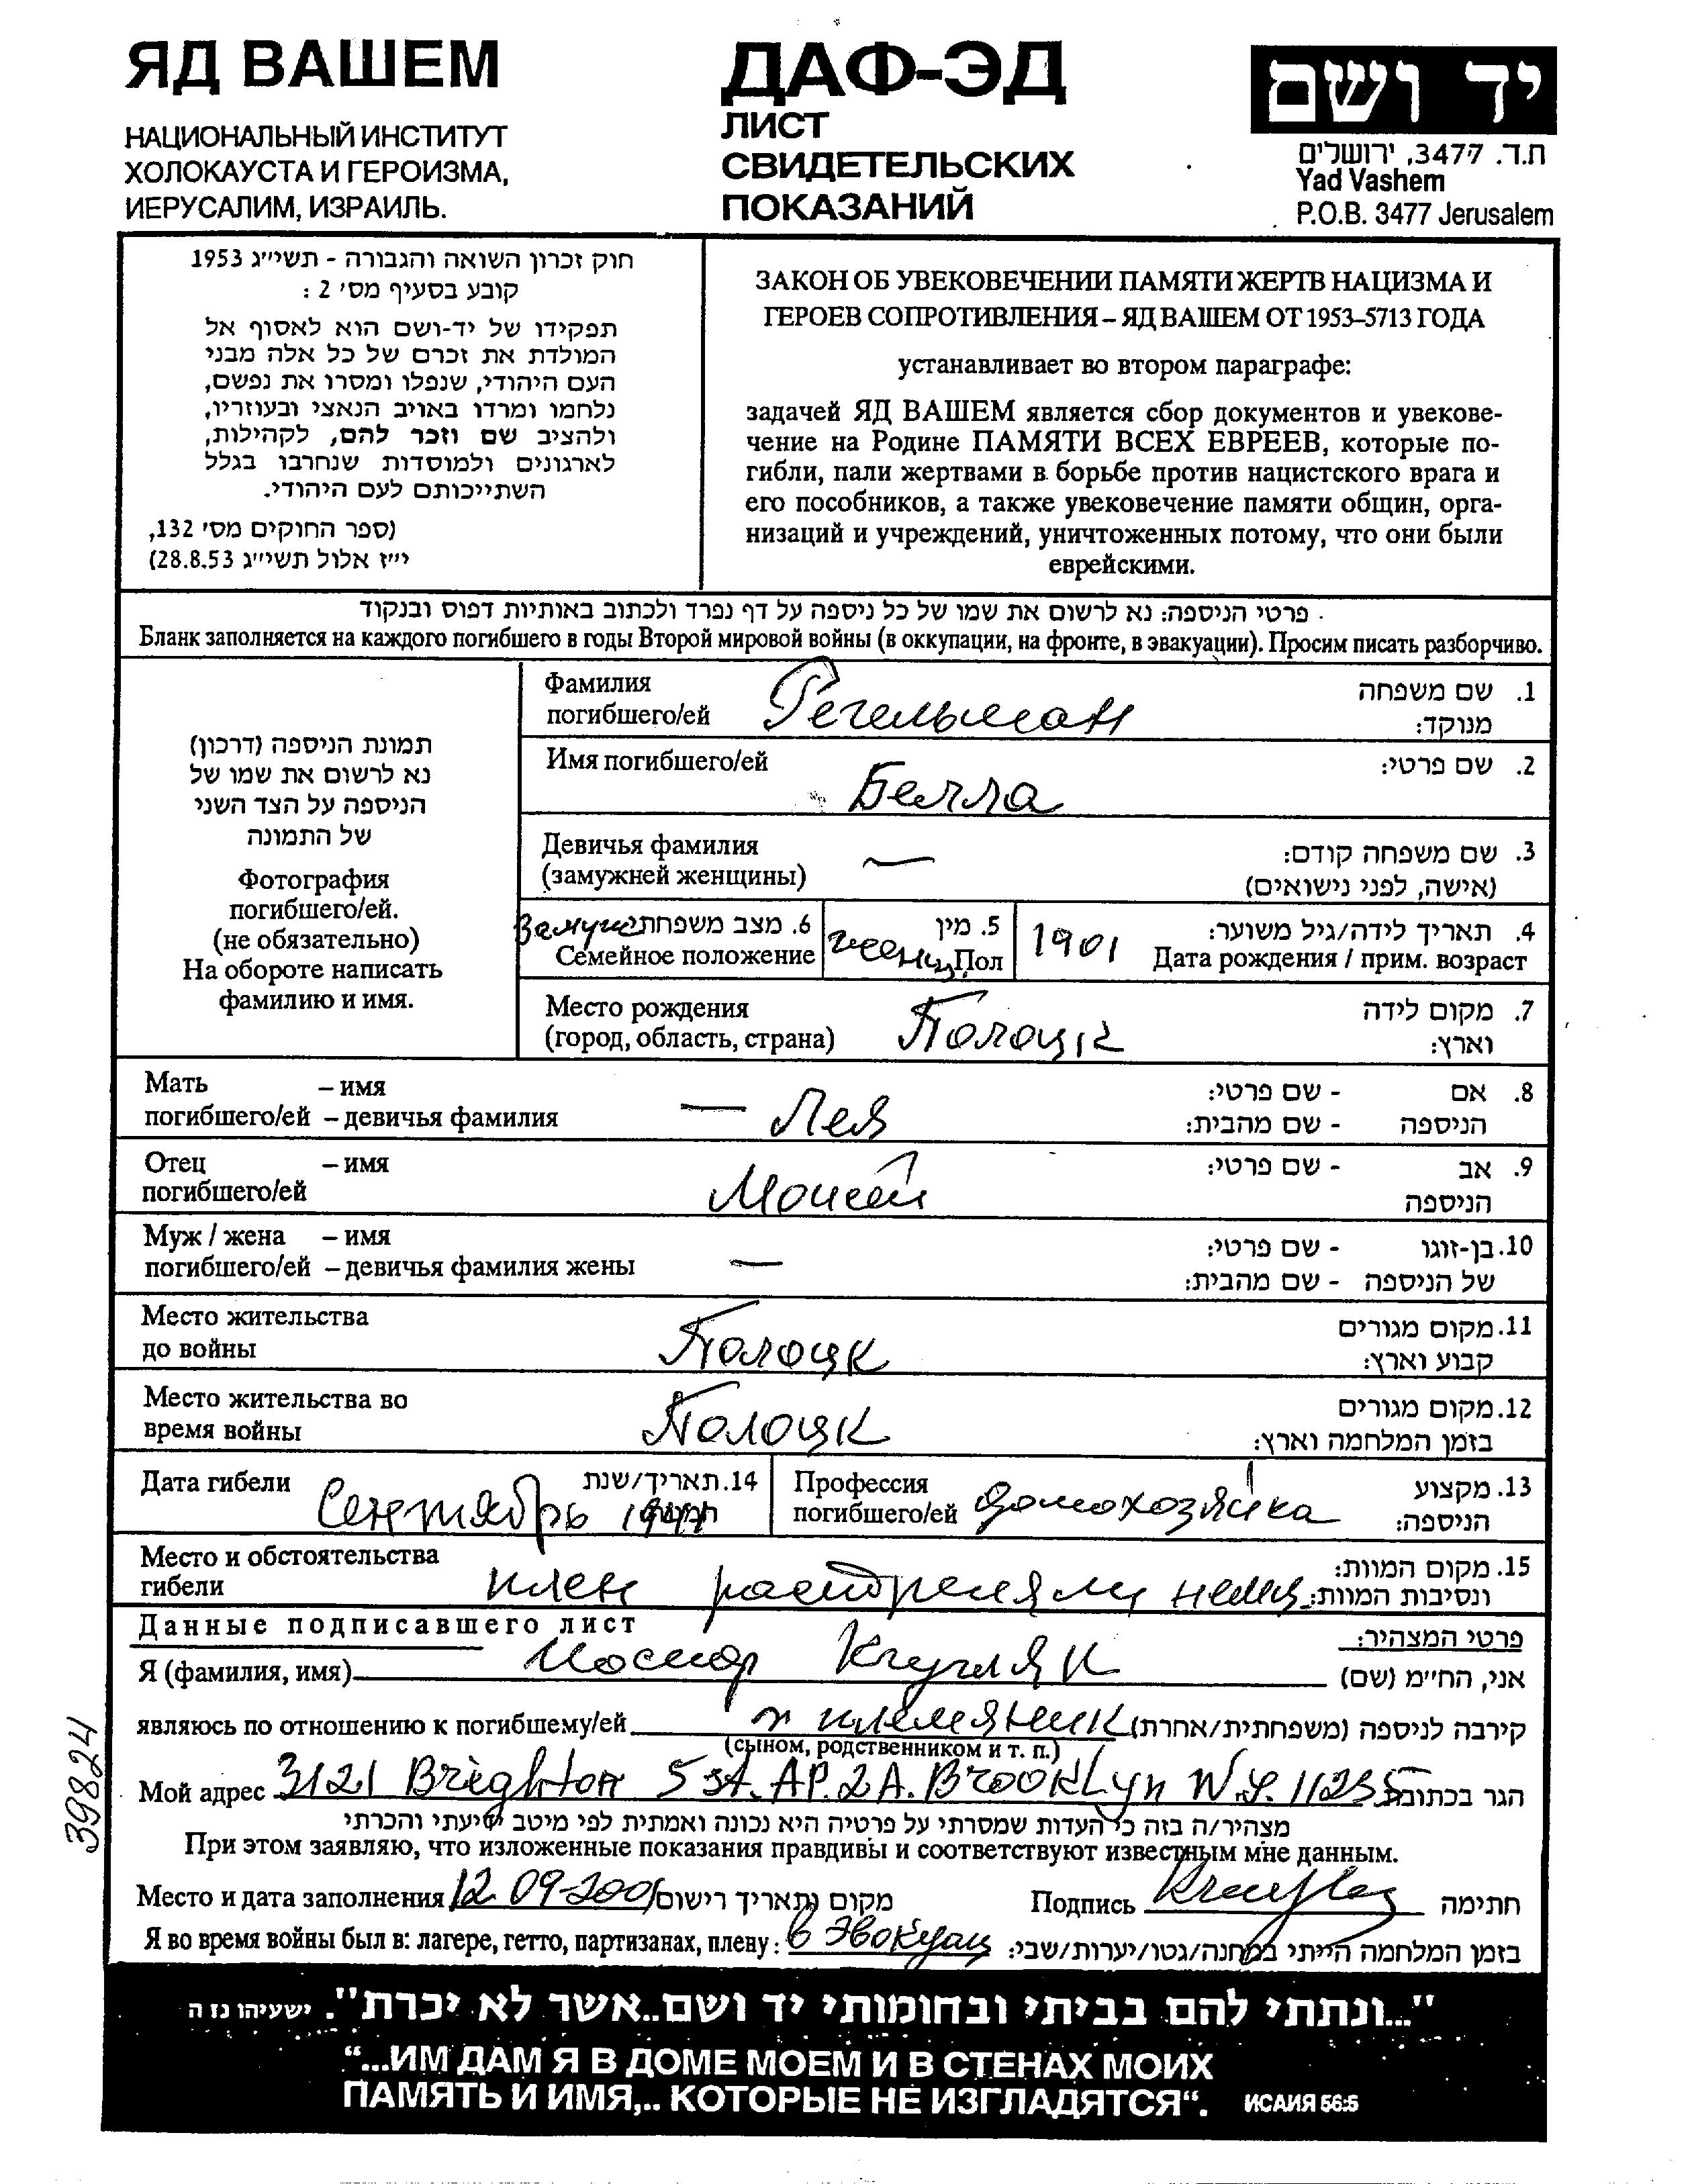 ЯД ВАШЕМ
НАЦИОНАЛЬНЫЙ ИНСТИТУТ
ХОЛОКАУСТА И ГЕРОИЗМА,
ИЕРУСАЛИМ, ИЗРАИЛЬ.
ДАФ-ЭД
ЛИСТ
СВИДЕТЕЛЬСКИХ
ПОКАЗАНИЙ
יד ושם
ת.ד. 3477, ירושלים
Yad Vashem
P.O.B. 3477 Jerusalem
חוק זכרון השואה והגבורה - תשי״ג 1953
קובע בסעיף מס׳ 2 :
תפקידו של יד-ושם הוא לאסוף אל
המולדת את זכרם של כל אלה מבני
העם היהודי, שנפלו ומסרו את נפשם,
נלחמו ומרדו באויב הנאצי ובעוזריו,
ולהציב שם וזכר להם, לקהילות,
לארגונים ולמוסדות שנחרבו בגלל
השתייכותם לעם היהודי.
(ספר החוקים מס׳ 132,
י״ז אלול תשי״ג 28.8.53)
ЗАКОН ОБ УВЕКОВЕЧЕНИИ ПАМЯТИ ЖЕРТВ НАЦИЗМА И
ГЕРОЕВ СОПРОТИВЛЕНИЯ – ЯД ВАШЕМ ОТ 1953–5713 ГОДА
устанавливает во втором параграфе:
задачей ЯД ВАШЕМ является сбор документов и увекове-
чение на Родине ПАМЯТИ ВСЕХ ЕВРЕЕВ, которые по-
гибли, пали жертвами в борьбе против нацистского врага и
его пособников, а также увековечение памяти общин, орга-
низаций и учреждений, уничтоженных потому, что они были
еврейскими.
פרטי הניספה: נא לרשום את שמו של כל ניספה על דף נפרד ולכתוב באותיות דפוס ובנקוד
Бланк заполняется на каждого погибшего в годы Второй мировой войны (в оккупации, на фронте, в эвакуации). Просим писать разборчиво.
תמונת הניספה (דרכון)
נא לרשום את שמו של
הניספה על הצד השני
של התמונה
Фотография
погибшего/ей.
(не обязательно)
На обороте написать
фамилию и имя.
Фамилия погибшего/ей Регельман 1. שם משפחה
מנוקד:
Имя погибшего/ей Белла 2. שם פרטי:
Девичья фамилия — 3. שם משפחה קודם:
(замужней женщины) (אישה, לפני נישואים)
замуж 6. מצב משפחתי
Семейное положение
женщ 5. מין
Пол
1901 4. תאריך לידה/גיל משוער:
Дата рождения / прим. возраст
Место рождения 7. מקום לידה
(город, область, страна) Полоцк וארץ:
Мать – имя 8. אם - שם פרטי:
погибшего/ей – девичья фамилия — Лея הניספה - שם מהבית:
Отец – имя 9. אב - שם פרטי:
погибшего/ей Моисей הניספה
Муж / жена – имя 10. בן-זוגו - שם פרטי:
погибшего/ей – девичья фамилия жены — של הניספה - שם מהבית:
Место жительства 11. מקום מגורים
до войны Полоцк קבוע וארץ:
Место жительства во 12. מקום מגורים
время войны Полоцк בזמן המלחמה וארץ:
Дата гибели 14. תאריך/שנת
Сентябрь 1941
Профессия 13. מקצוע
погибшего/ей домохозяйка הניספה:
Место и обстоятельства 15. מקום המוות:
гибели плен расстреляли немц ונסיבות המוות:
Данные подписавшего лист פרטי המצהיר:
Я (фамилия, имя) Кругляк אני, הח״מ (שם)
являюсь по отношению к погибшему/ей племянник קירבה לניספה (משפחתית/אחרת)
(сыном, родственником и т. п.)
Мой адрес 3121 Brighton 5 st. AP. 2A. Brooklyn N.Y. 11235 הגר בכתובת
מצהיר/ה בזה כי העדות שמסרתי על פרטיה היא נכונה ואמתית לפי מיטב ידיעתי והכרתי
При этом заявляю, что изложенные показания правдивы и соответствуют известным мне данным.
Место и дата заполнения 12.09-2001 מקום ותאריך רישום Подпись חתימה
Я во время войны был в: лагере, гетто, партизанах, плену: в Эвокуац בזמן המלחמה הייתי במחנה/גטו/יערות/שבי:
39824
"...ונתתי להם בביתי ובחומותי יד ושם..אשר לא יכרת". ישעיהו נז ה
“...ИМ ДАМ Я В ДОМЕ МОЕМ И В СТЕНАХ МОИХ
ПАМЯТЬ И ИМЯ,.. КОТОРЫЕ НЕ ИЗГЛАДЯТСЯ“. ИСАИЯ 56:5